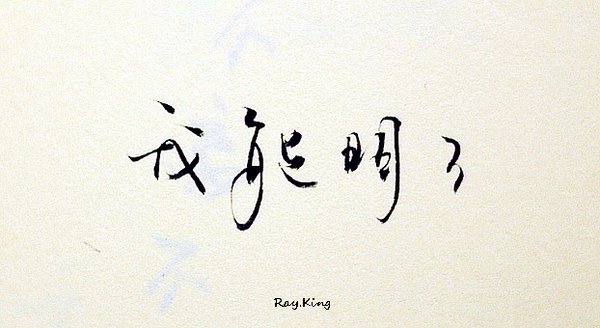 我能明了
Ray.King